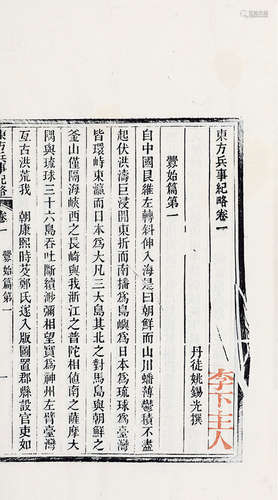 東方兵事紀略卷一
丹徒姚錫光撰
釁始篇第一
自中國艮維左轉斜伸入海是曰朝鮮而山川蟠薄鬱積不盡
起伏洪濤巨浸閒東折而南播為島嶼為日本為琉球為臺灣
皆環峙東瀛而日本為大凡三大島其北之對馬島與朝鮮之
釜山僅隔海峽西之長崎與我浙江之普陀相值南之薩摩大
隅與琉球三十六島吞吐斷續渺彌相望實為神州左臂臺灣
互古洪荒我 朝康熙時芟鄭氏遂入版圖置郡縣設官吏如
東方兵事紀略 卷一 釁始篇第一
李下主人